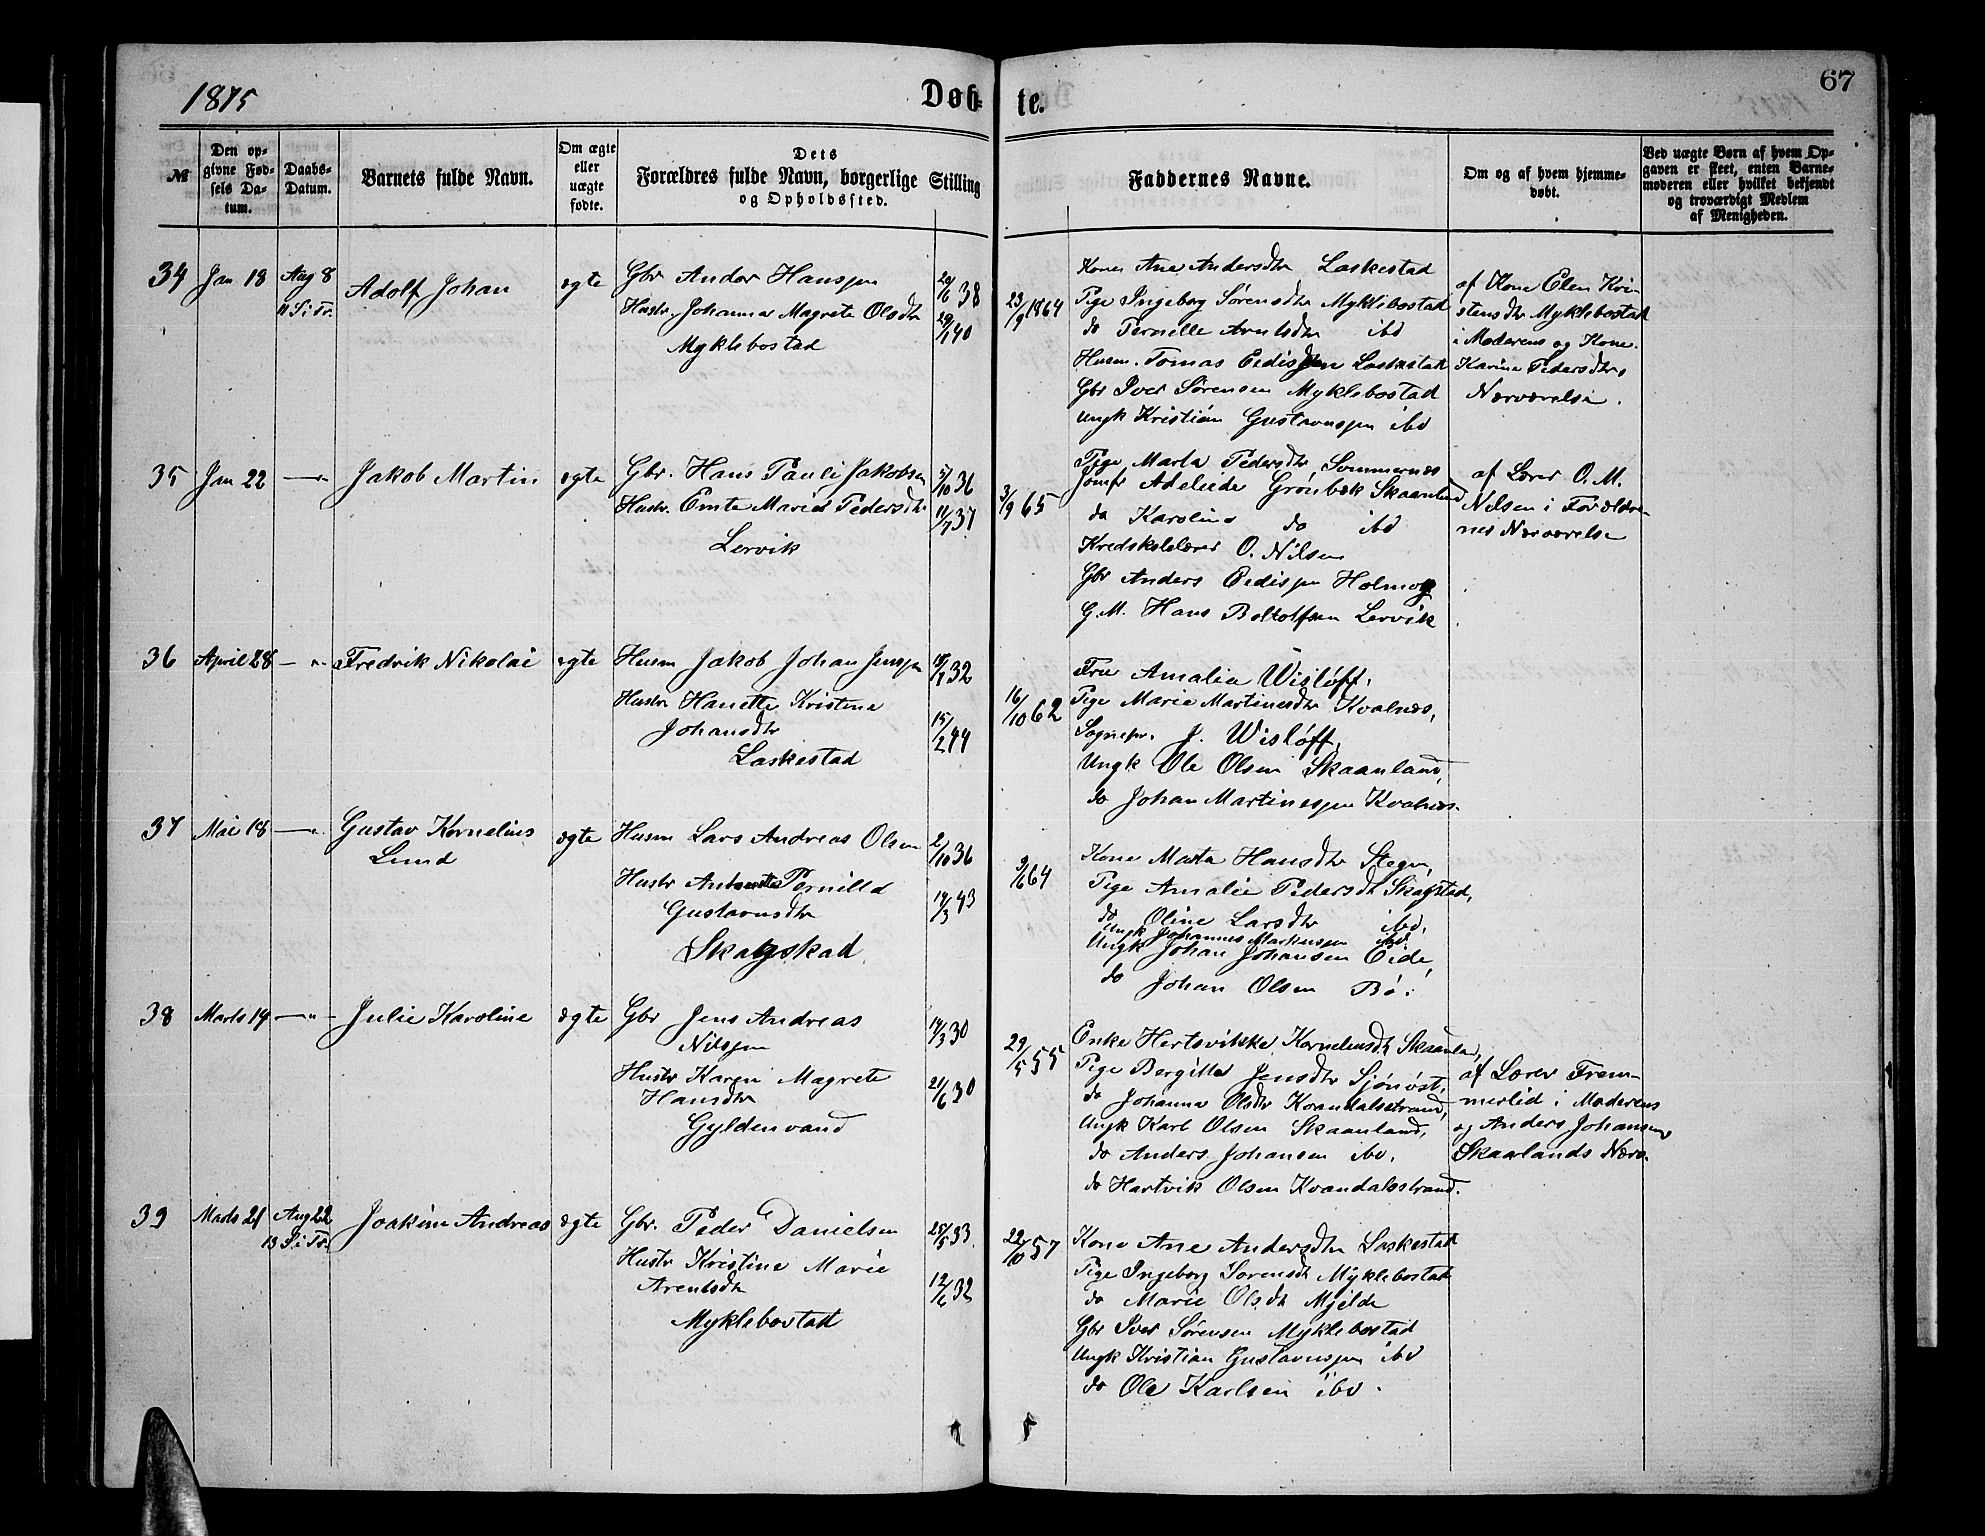 1875
Døb-
te.
67
№
Den op-
givne Fød-
sels Da-
tum.
Daabs-
Datum.
Barnets fulde Navn.
Om ægte
eller
uægte
fødte.
Dets
Forældres fulde Navn, borgerlige Stilling
og Opholdssted.
Faddernes Navne.
Om og af hvem hjemme-
døbt.
Ved uægte Børn af hvem Op-
gaven er skeet, enten Barne-
moderen eller hvilket bekjendt
og troværdigt Medlem
af Menigheden.
34 Jan 18 Aug 8 Adolf Johan ægte Gbr Ander Hanssen 38
11 S i Tr. Hustr. Johanna Magrete Olsdtr 40
Myklebostad
23/9 1864
Kone Ane Andersdtr Laskestad
Pige Ingeborg Sørensdtr Myklebostad
do Pernille Arntsdtr ibd
Husm. Tomas Eedissen Laskestad
Gbr Iver Sørensen Myklebostad
Ungk Kristian Gustavussen ibd
af Kone Elen Kri-
stensdtr Myklebostad
i Moderens og Kone
Karina Pedersdtrs
Nærværelse.
35 Jan 22 —"— Jakob Martin ægte Gbr. Hans Pauli Jakobsen 5/10 36
Hustr. Emte Maria Pedersdtr 11/7 37
Lervik
3/9 65
Pige Marta Pedersdtr Sommernes
Jomfr Adeleide Grønbæk Skaanland
do Karolina do ibd
Kredsskolelærer O. Nilsen
Gbr Anders Eedissen Holmog
G.M. Hans Boltolfsen Lervik
af Lærer O. M.
Nilsen i Forældre-
nes Nærværelse
36 April 28 —"— Fredrik Nikolai ægte Husm Jakob Johan Jenssen 32
Hustr Hanette Kristina
Johansdtr 15/2 44
Laskestad
16/10 62
Fru Amalia Wisløff.
Pige Marie Martinesdtr Kvalnes,
Sognepr. J. Wisløff,
Ungk Ole Olsen Skaanland,
do Johan Martinessen Kvalnes.
37 Mai 18 —"— Gustav Kornelius ægte Husm Lars Andreas Olsen 2/10 36
Lund
Hustr Antonette Pernilla
Gustavusdtr 14/3 43
Skagskad
9/6 64
Kone Marta Hansdtr Stegen,
Pige Amalie Pedersdt Skagstad,
do Oline Larsdtr ibd,
Ungk Johannes Markussen ibd.
Ungk Johan Johansen Eide,
do Johan Olsen Bø.
38 Marts 19 —"— Julie Karoline ægte Gbr Jens Andreas 14/3 30
Nilssen
Hustr Karen Magrete 21/6 30
Hansdtr
Gyldenvand
29/5 55
Enke Hertsvikske Kornelensdt Skaanla,
Pige Bergitta Jensdtr Sjønøst,
do Johanna Olsdtr Kvandalsstrand,
Ungk Karl Olsen Skaanland,
do Anders Johansen ibd.
do Hartvik Olsen Kvandalsstrand.
af Lærer Frem-
merlid i Moderens
og Anders Johansens
Skaarlands Nærv.
39 Marts 21 Aug 22 Joakim Andreas ægte Gbr. Peder Danielsen 25/5 33
13 S i Tr.
Hustr Kristine Marie
Arentsdtr 12/6 32
Myklebostad
22/10 57
Kone Ane Andersdtr Laskestad
Pige Ingeborg Sørensdt Myklebostad
do Marie Olsdt Mjelde
Gbr Iver Sørensen Myklebostad
Ungk Kristian Gustavussen ibd
do Ole Karlsen ibd.